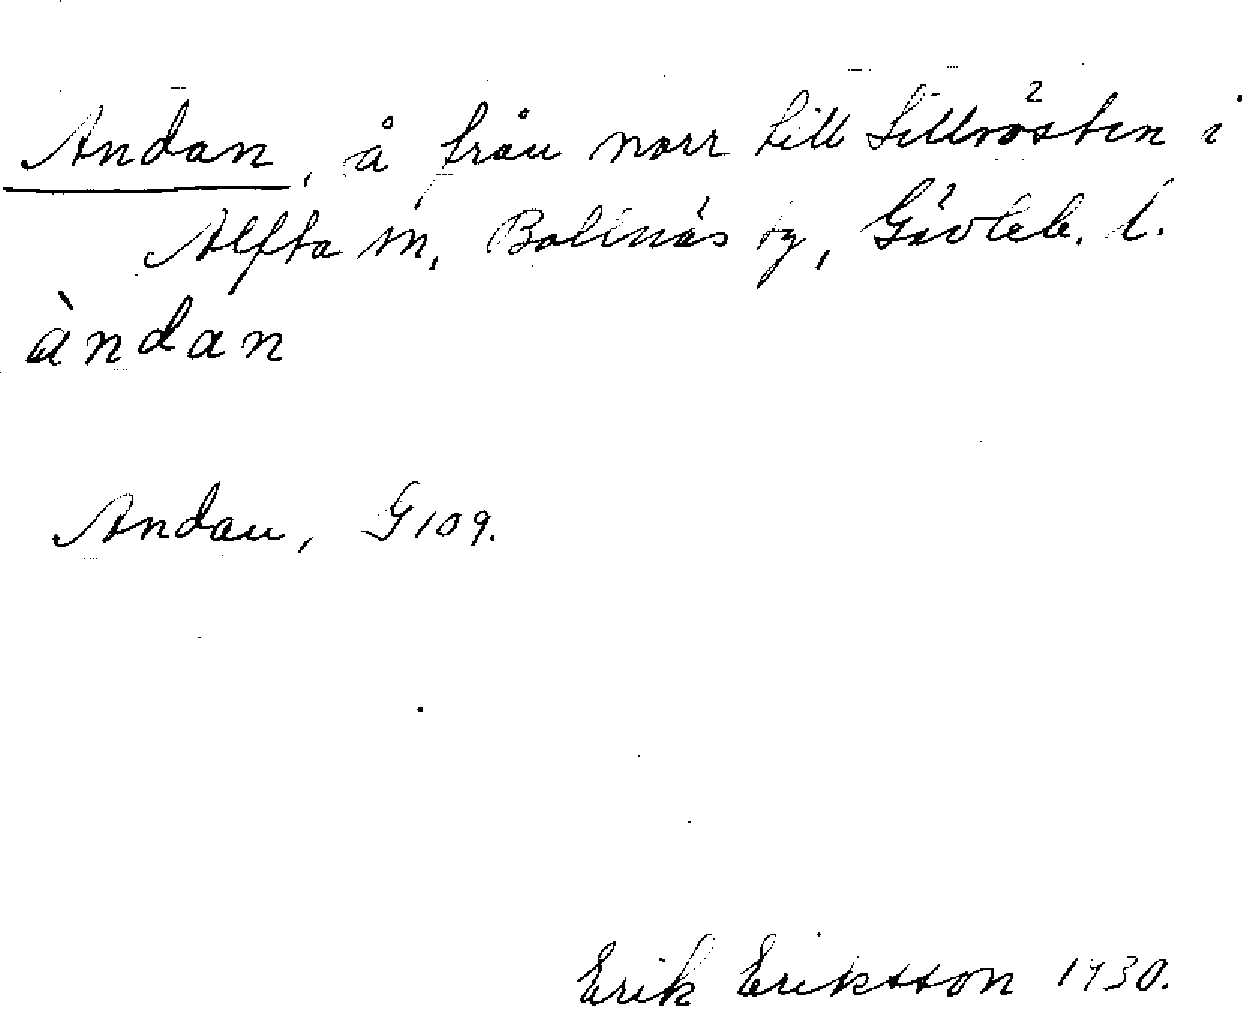 Andan, å från norr till Lillrösten i
Alfta sn, Bollnäs tg, Gävleb. l.
àndan
Andan, G109.
Erik Eriksson 1930.